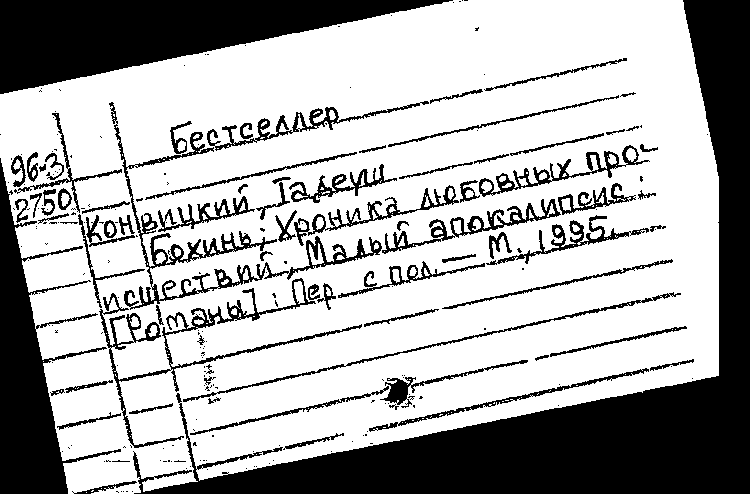 Бестселлер
96-3
2750
Конвицкий, Тадеуш
Бохинь; Хроника любовных про-
исшествий; Малый апокалипсис :
[Романы] : Пер. с пол. — М., 1995.